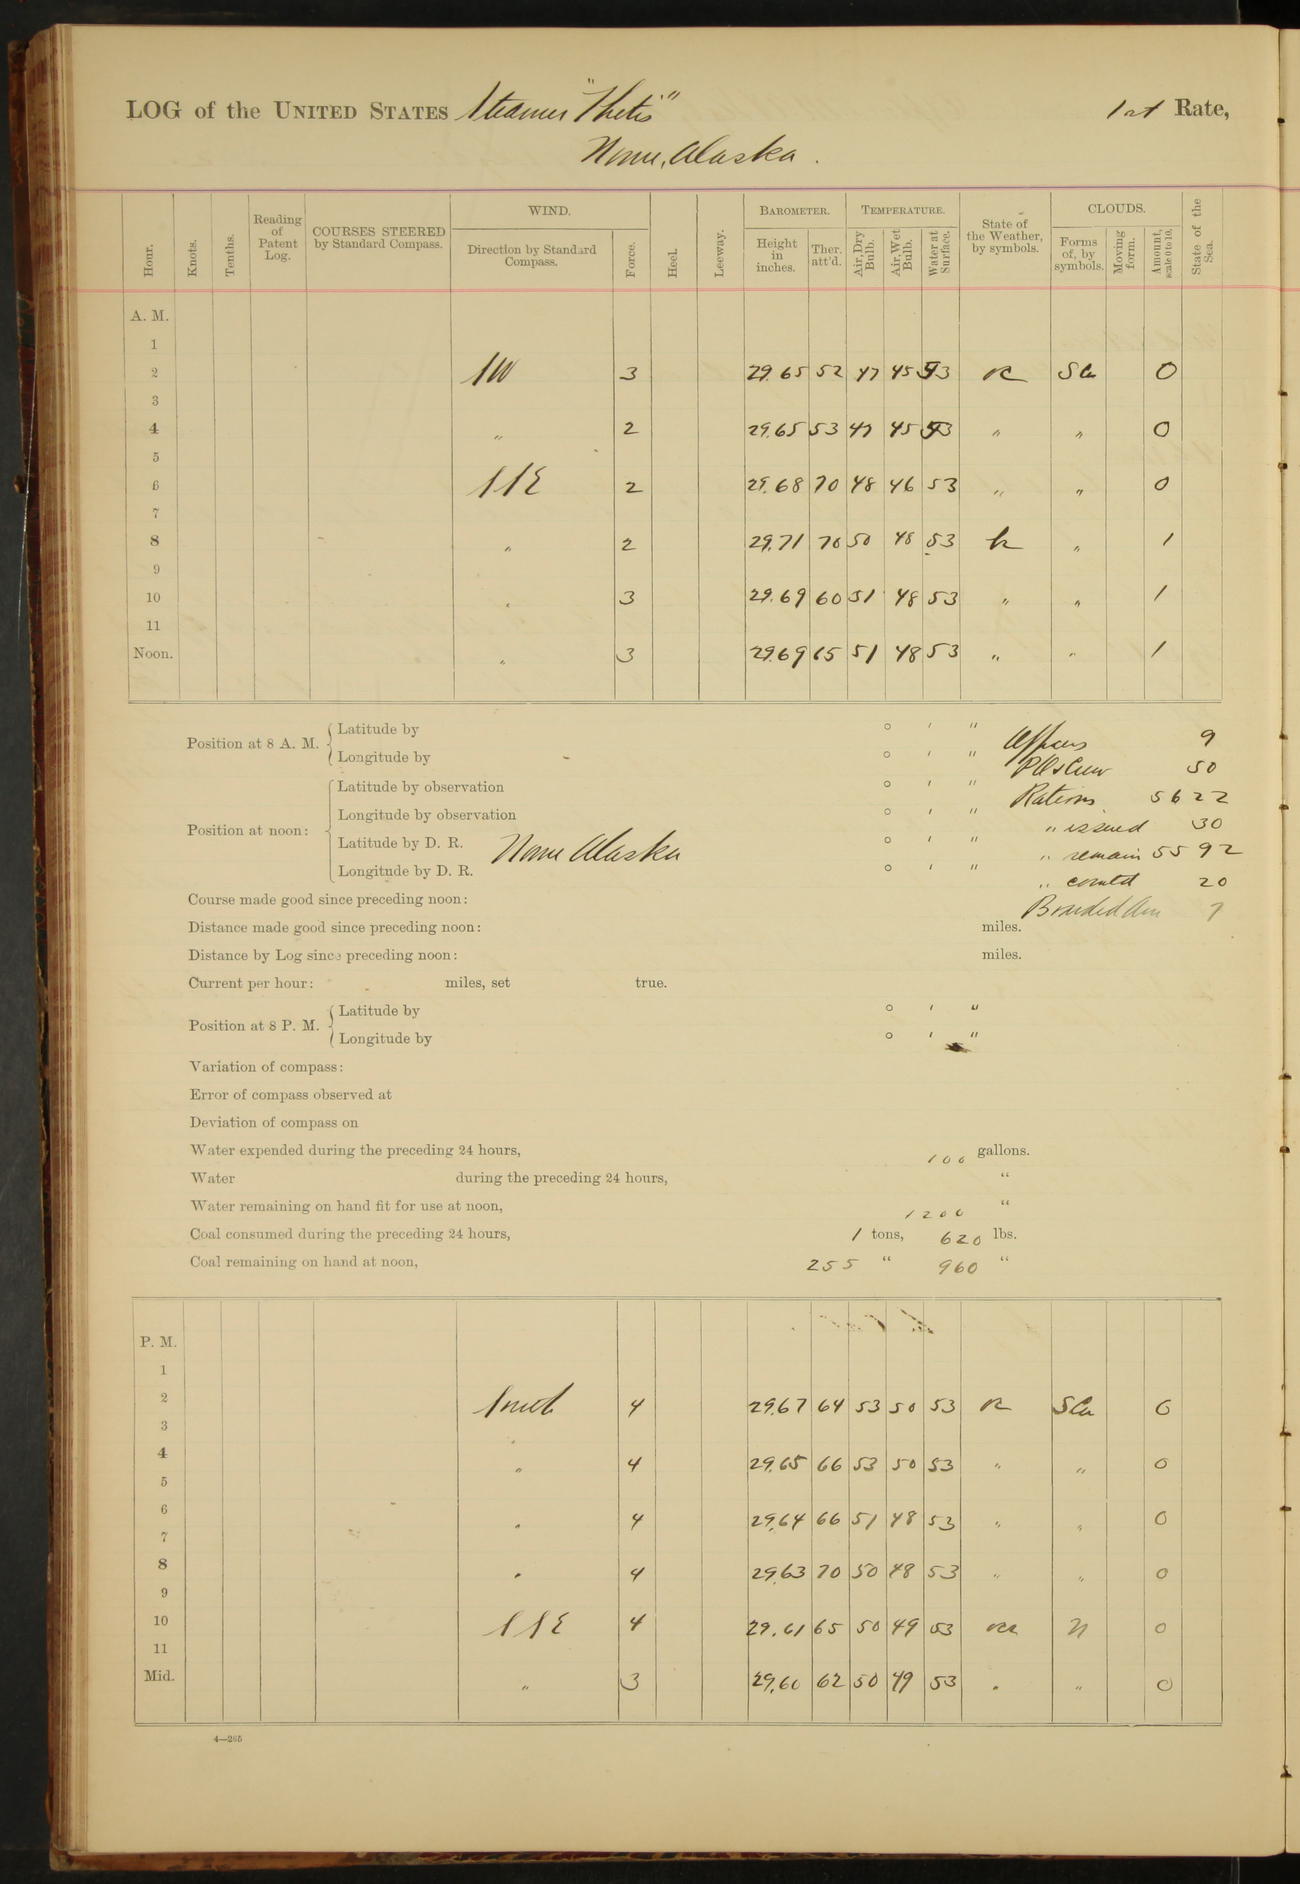 LOG of the UNITED STATES Steamer "Thetis" 1st Rate,
Nome, Alaska.
Hour. Knots. Tenths. Reading of Patent Log. COURSES STEERED by Standard Compass. WIND. Direction by Standard Compass. Force. Heel. Leeway. BAROMETER. Height in inches. Ther. att'd. TEMPERATURE. Air, Dry Bulb. Air, Wet Bulb. Water at Surface. State of the Weather, by symbols. CLOUDS. Forms of, by symbols. Moving form. Amount, scale 0 to 10. State of the Sea.
A. M.
1
2 SW 3 29.65 52 47 45 53 oc S Cu 0
3
4 " 2 29.65 53 47 45 53 " " 0
5
6 SSE 2 29.68 70 48 46 53 " " 0
7
8 " 2 29.71 70 50 48 53 bc " 1
9
10 " 3 29.69 60 51 48 53 " " 1
11
Noon. " 3 29.69 65 51 48 53 " " 1
Position at 8 A. M. Latitude by ° ' " Officers 9
Longitude by ° ' " P.Os Crew 50
Position at noon: Latitude by observation ° ' " Rations 5622
Longitude by observation ° ' " " issued 30
Latitude by D. R. Nome Alaska ° ' " " remain 5592
Longitude by D. R. ° ' " " comtd 20
Course made good since preceding noon: Boarded 7
Distance made good since preceding noon: miles.
Distance by Log since preceding noon: miles.
Current per hour: miles, set true.
Position at 8 P. M. Latitude by ° ' "
Longitude by ° ' "
Variation of compass:
Error of compass observed at
Deviation of compass on
Water expended during the preceding 24 hours, 100 gallons.
Water during the preceding 24 hours, "
Water remaining on hand fit for use at noon, 1200 "
Coal consumed during the preceding 24 hours, 1 tons, 620 lbs.
Coal remaining on hand at noon, 255 " 960 "
P. M.
1
2 South 4 29.67 64 53 50 53 oc S Cu 0
3
4 " 4 29.65 66 53 50 53 " " 0
5
6 " 4 29.64 66 51 48 53 " " 0
7
8 " 4 29.63 70 50 48 53 " " 0
9
10 SSE 4 29.61 65 50 49 53 N 0
11
Mid. " 3 29.60 62 50 49 53 " " 0
4—265